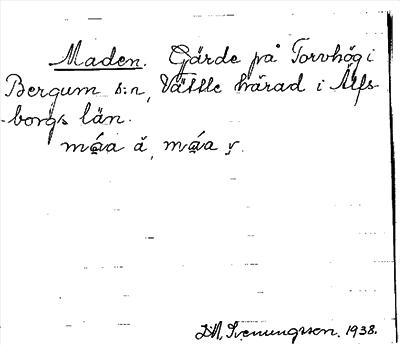 Maden. Gärde på Torvhög i
Bergum s:n, Vättle härad i Älfs-
-borgs län.
máa ă, máa y.
D.M. Svenungsson. 1938.